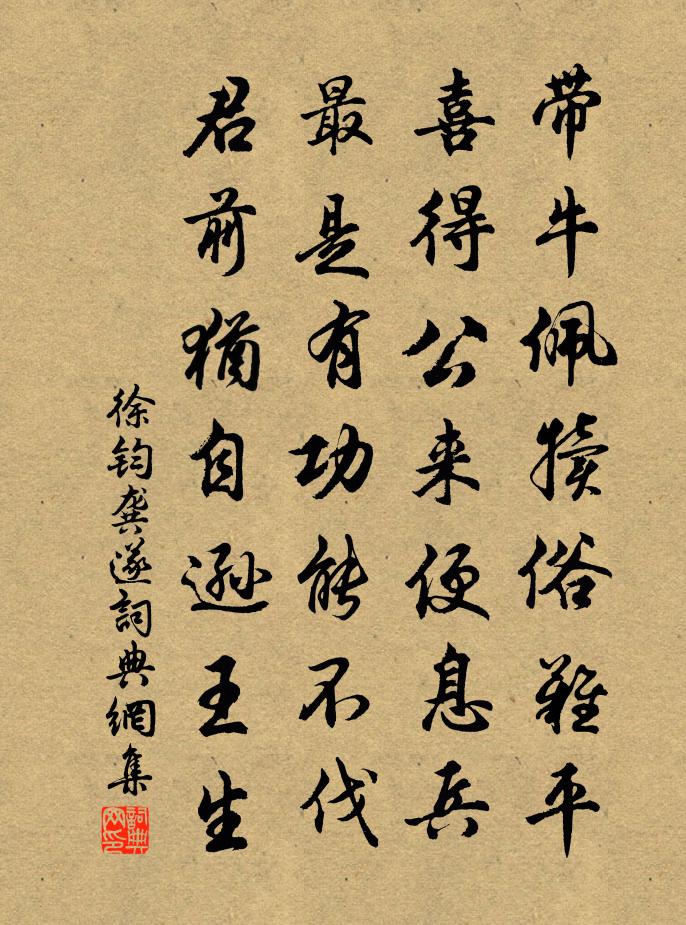 带牛佩犊俗難平
喜得公来便息兵
最是有功能不伐
君前猶自遜王生
徐钧龔遂詞典網集
詞典网印